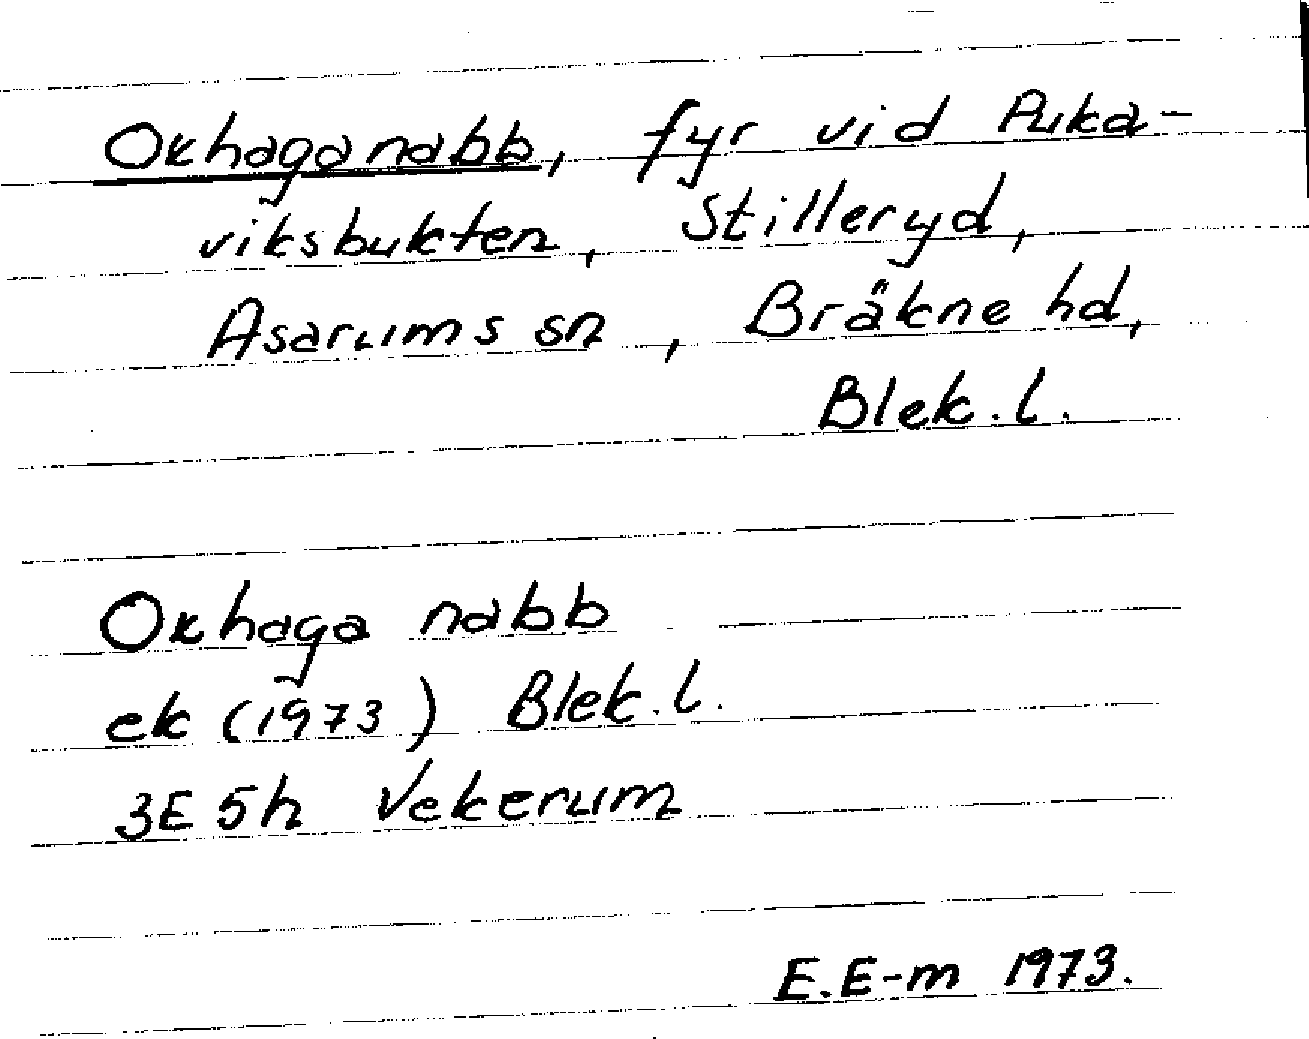 Oxhaga nabb, fyr vid Puka-
viksbukten, Stilleryd,
Asarums sn, Bräkne hd,
Blek. l.
Oxhaga nabb
ek (1973) Blek. l.
3E 5h Vekerum
E. E-m 1973.